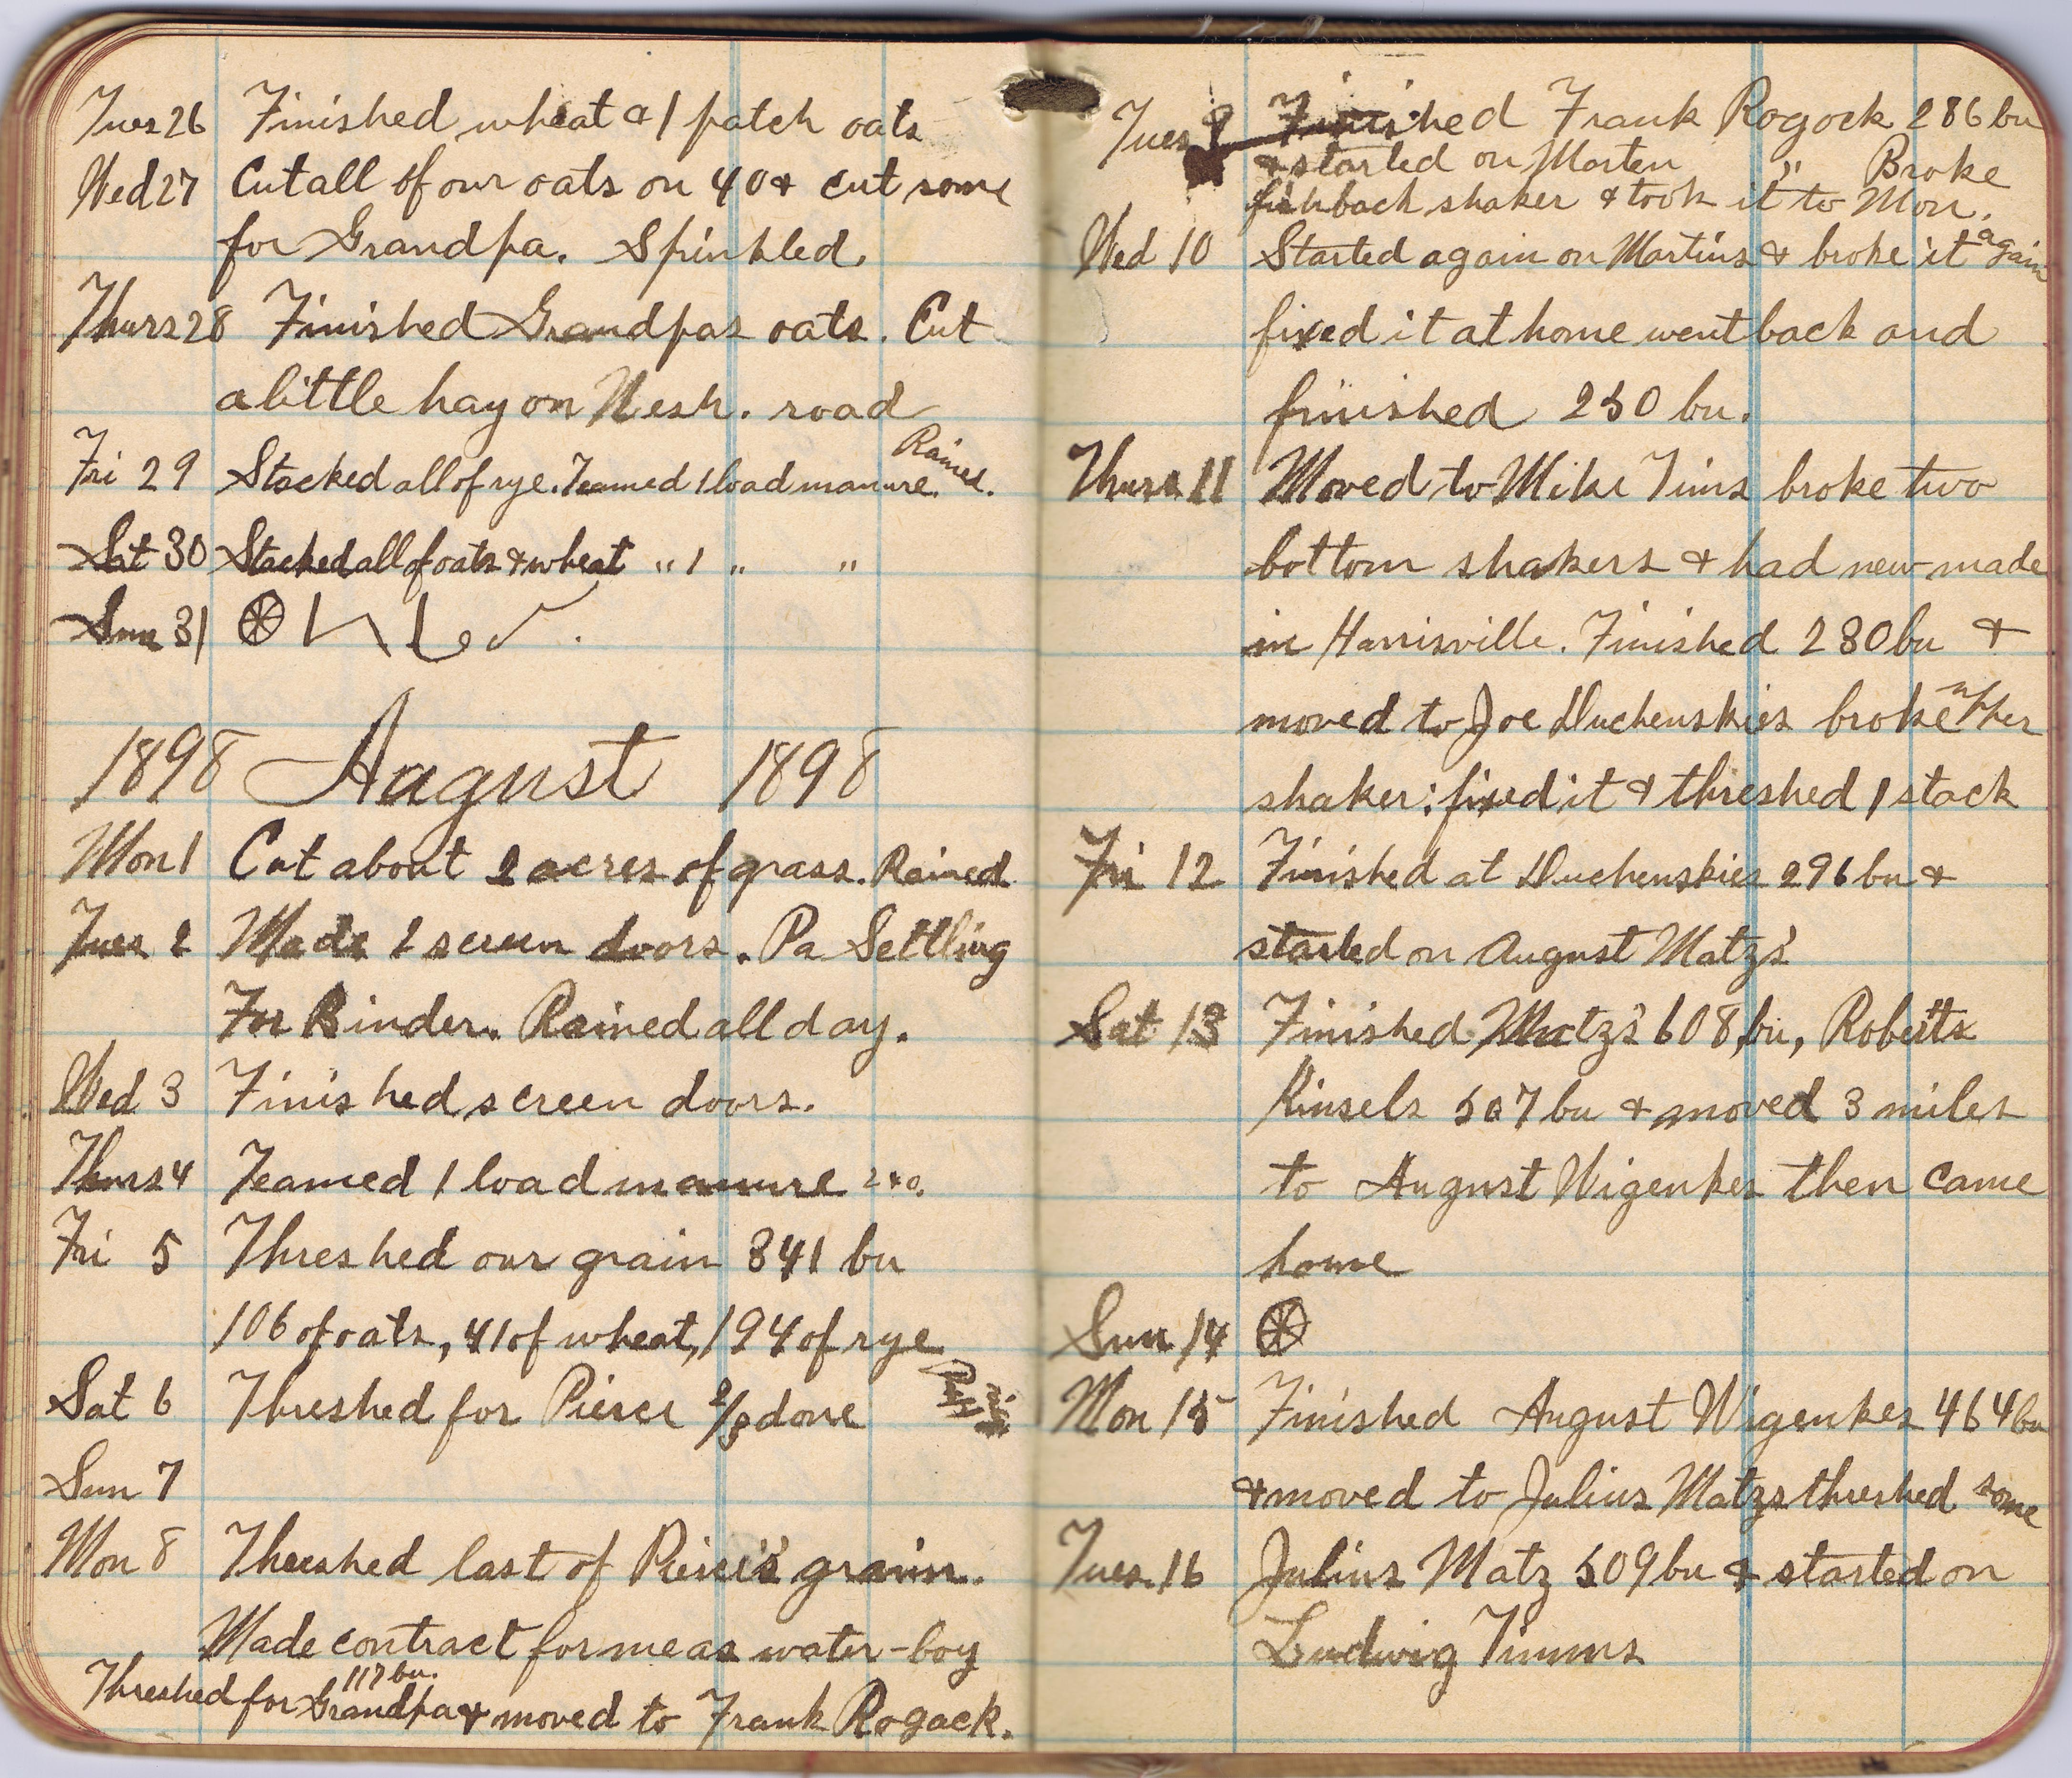 Tues 26 Finished wheat & 1 patch oats
Wed 27 Cut all of our oats on 40 & cut some
for Grandpa. Sprinkled.
Thurs 28 Finished Grandpas oats. Cut
a little hay on Nesh. road
Fri 29 Stacked all of rye. Teamed 1 load manure. Rained.
Sat 30 Stacked all of oats & wheat " 1 " "
Sun 31
1898 August 1898
Mon 1 Cut about 2 acres of grass. Rained
Tues 2 Made 2 screen doors. Pa Settling
For Binder. Rained all day.
Wed 3 Finished screen doors.
Thurs 4 Teamed 1 load manure
Fri 5 Threshed our grain 341 bu
106 of oats, 41 of wheat, 194 of rye
Sat 6 Threshed for Pierer 2/3 done
Sun 7
Mon 8 Threshed last of grain.
Made contract for me as water-boy
Threshed for Grandpa 117 bu. & moved to Frank Rogack.
Tues 9 Finished Frank Rogock 286 bu
& started on Marten " Broke
fishback shaker & took it to Mon.
Wed 10 Started again on Martins & broke it again
fixed it at home went back and
finished 250 bu.
Thurs 11 Moved to Mike Tims broke two
bottom shakers & had new made
in Harrisville. Finished 280 bu &
moved to Joe Duchenskies broke upper
shaker; fixed it & threshed 1 stack
Fri 12 Finished at Duchenskies 296 bu &
started on August Matz's
Sat 13 Finished Matz's 608 bu, Roberts
Kinsels 507 bu & moved 3 miles
to August Wigenkes then came
home
Sun 14
Mon 15 Finished August Wigenkes 464 bu
& moved to Julius Matzs threshed some
Tues. 16 Julius Matz 509 bu & started on
Ludwig Timms